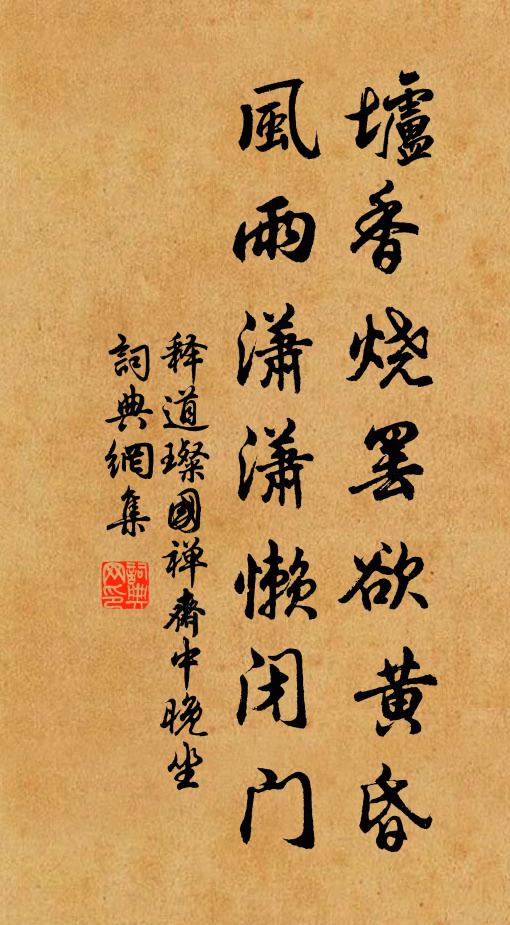 壚香烧罢欲黄昏
風雨瀟瀟懒闭门
释道璨國禅齋中晚坐
詞典網集
詞典网印